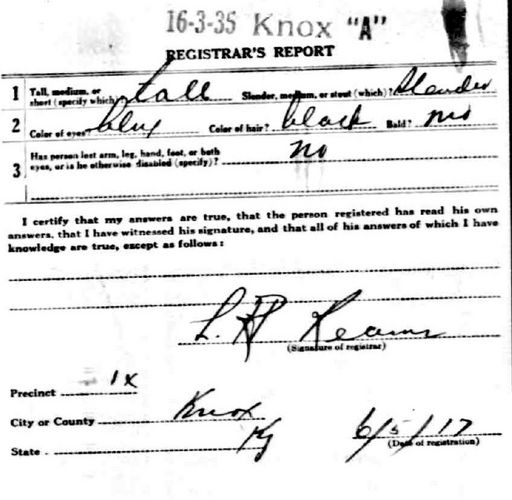 16-3-35 Knox "A"
REGISTRAR'S REPORT
1 Tall, medium, or short (specify which)? tall Slender, medium, or stout (which)? Slender
2 Color of eyes? blue Color of hair? black Bald? no
3 Has person lost arm, leg, hand, foot, or both eyes, or is he otherwise disabled (specify)? no
I certify that my answers are true, that the person registered has read his own
answers, that I have witnessed his signature, and that all of his answers of which I have
knowledge are true, except as follows:
L. H. Kearns
(Signature of registrar)
Precinct 1x
City or County Knox
State Ky 6/5/17
(Date of registration)